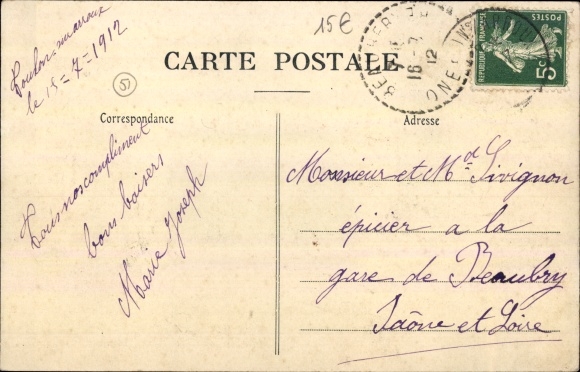 Toulon sur arroux
le 15-7-1912
15€
CARTE POSTALE
57
Correspondance
Adresse
Tous nos compliment
bons baisers
Marie Joseph
Monsieur et Md Livignon
épicier a la
gare de Beaubry
Saône et Loire
16 - 7
12
REPUBLIQUE FRANÇAISE
POSTES
5c